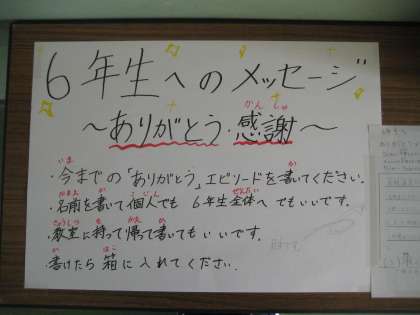 6年生へのメッセージ
～ありがとう・感謝～
・今までの「ありがとう」エピソードを書いてください。
・名前を書いて個人でも 6年生全体へ でもいいです。
・教室に持って帰って書いてもいいです。
・書けたら 箱に入れてください。